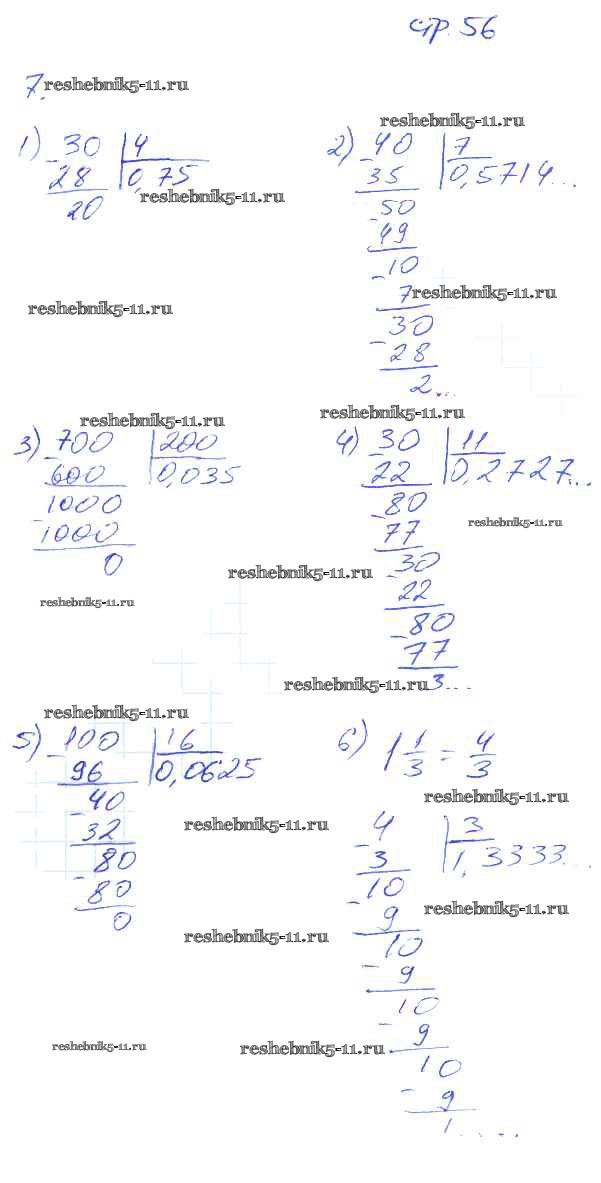 стр. 56
7. reshebnik5-11.ru
1) 30 | 4
- 28 | 0,75
20
reshebnik5-11.ru
reshebnik5-11.ru
2) 40 | 7
- 35 | 0,5714...
- 50
49
- 10
7
reshebnik5-11.ru
- 30
28
2...
reshebnik5-11.ru
3) 700 | 200
- 600 | 0,035
- 1000
1000
0
reshebnik5-11.ru
reshebnik5-11.ru
reshebnik5-11.ru
4) 30 | 11
- 22 | 0,2727...
- 80
77
reshebnik5-11.ru
- 30
22
- 80
77
3...
reshebnik5-11.ru
reshebnik5-11.ru
5) 100 | 16
- 96 | 0,0625
- 40
32
- 80
80
0
reshebnik5-11.ru
reshebnik5-11.ru
reshebnik5-11.ru
6) 1 1/3 = 4/3
reshebnik5-11.ru
- 4 | 3
3 | 1,3333...
- 10
9
reshebnik5-11.ru
- 10
9
- 10
9
reshebnik5-11.ru
- 10
9
1.....